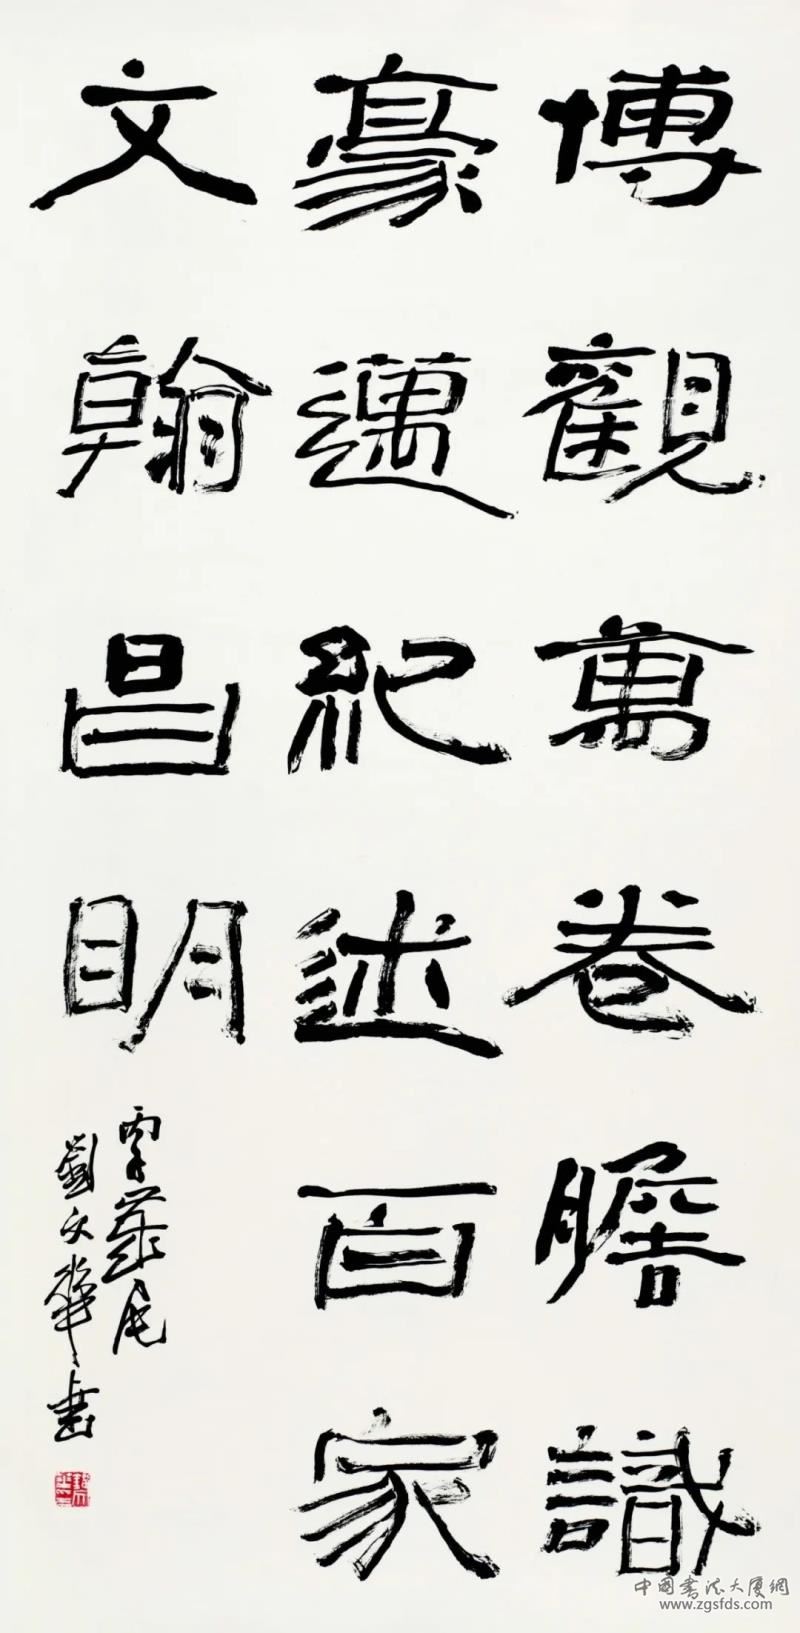 博觀萬卷膽識
豪邁紀述百家
文翰昌明
丙子歲尾
劉文華書
中国书法大厦網
www.zgsfds.com